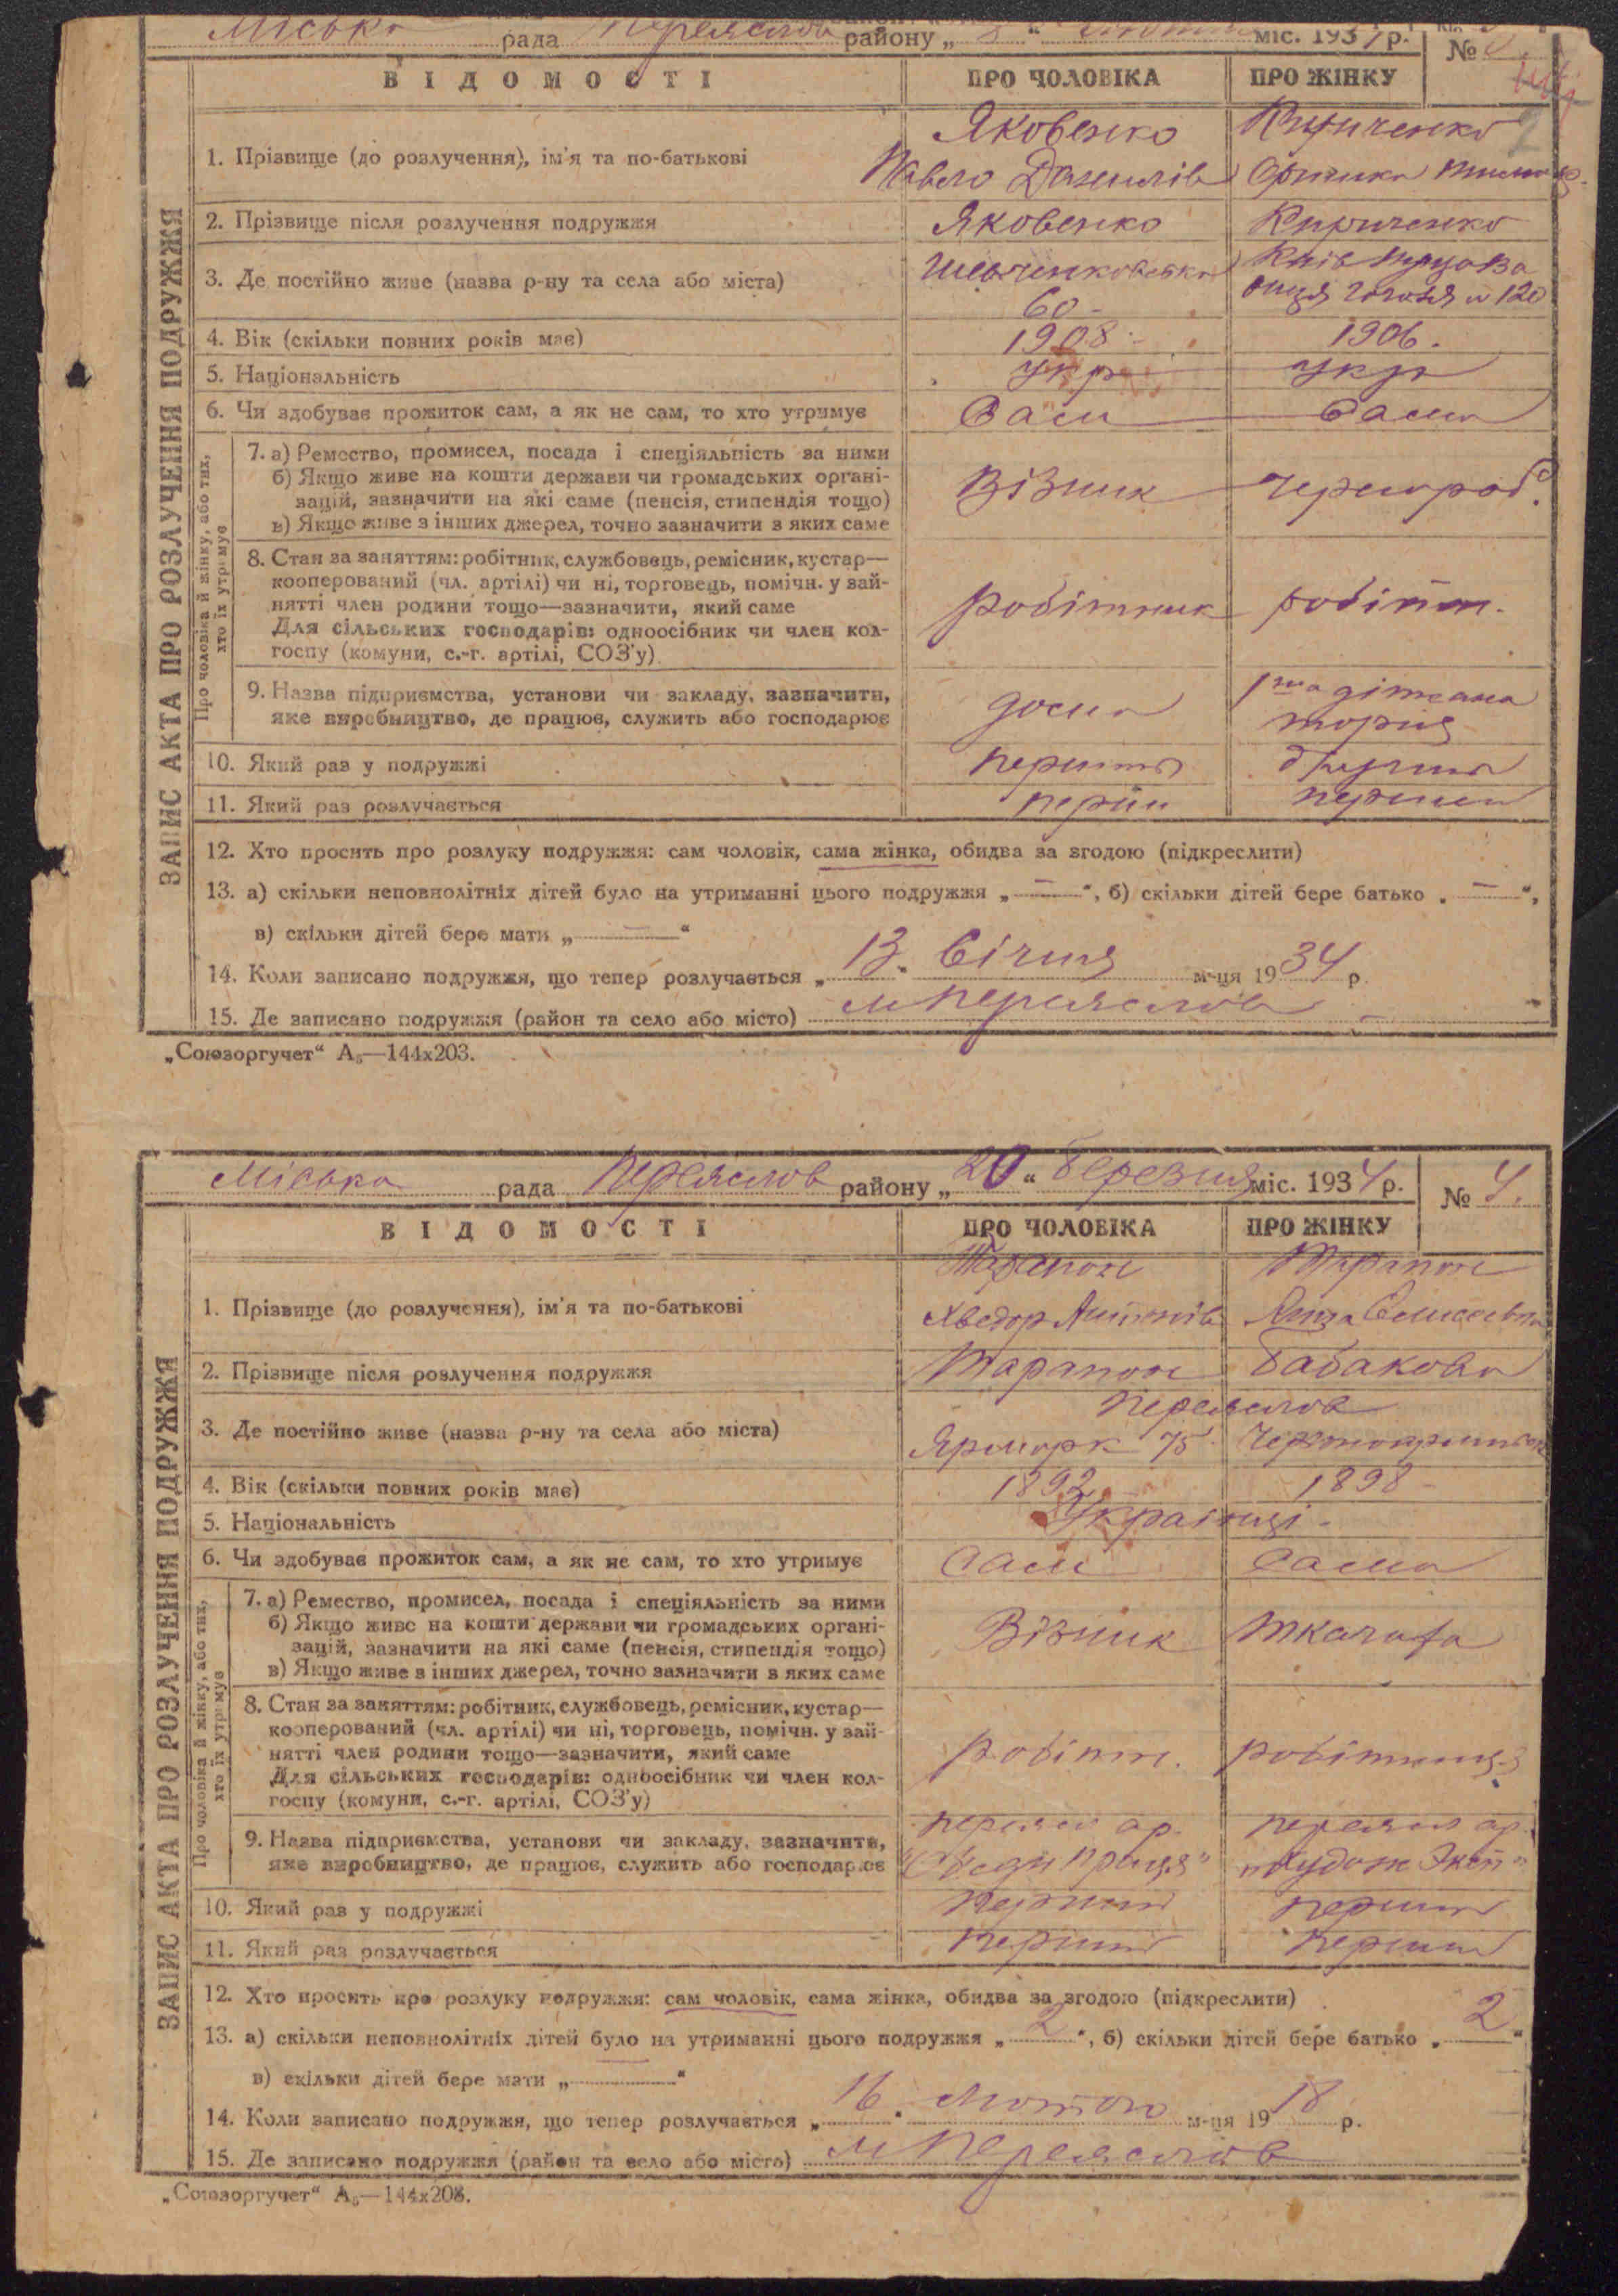 Міська рада Переяслов району „ “ лютого міс. 193 р. №
ВІДОМОСТІ ПРО ЧОЛОВІКА ПРО ЖІНКУ
1. Прізвище (до розлучення), ім'я та по-батькові Яковенко Павло Данилів Кириченко
2. Прізвище після розлучення подружжя Яковенко Кириченко
3. Де постійно живе (назва р-ну та села або міста) Шевченковська 60 Київ вулиця Гоголя № 120
4. Вік (скільки повних років має) 1908 1906.
5. Національність укр укр
6. Чи здобуває прожиток сам, а як не сам, то хто утримує Сам Сама
ЗАПИС АКТА ПРО РОЗЛУЧЕННЯ ПОДРУЖЖЯ
Про чоловіка й жінку, або тих,
хто їх утримує
7. а) Ремество, промисел, посада і спеціяльність за ними
б) Якщо живе на кошти держави чи громадських органі-
зацій, зазначити на які саме (пенсія, стипендія тощо)
в) Якщо живе з інших джерел, точно зазначити з яких саме
Візник чорнороб.
8. Стан за заняттям: робітник, службовець, ремісник, кустар—
кооперований (чл. артілі) чи ні, торговець, помічн. у зай-
нятті член родини тощо—зазначити, який саме
Для сільських господарів: одноосібник чи член кол-
госпу (комуни, с.-г. артілі, СОЗ'у)
робітник робітн.
9. Назва підприємства, установи чи закладу, зазначити,
яке виробництво, де працює, служить або господарює
10. Який раз у подружжі перший другий
11. Який раз розлучається перший перший
12. Хто просить про розлуку подружжя: сам чоловік, сама жінка, обидва за згодою (підкреслити)
13. а) скільки неповнолітніх дітей було на утриманні цього подружжя „—“, б) скільки дітей бере батько „—“,
в) скільки дітей бере мати „—“
14. Коли записано подружжя, що тепер розлучається „13. Січня м-ця 1934 р.
15. Де записано подружжя (район та село або місто) м Переяслов
„Союзоргучет“ А₅—144х203.
Міська рада Переяслов району „20“ березня міс. 1934 р. № 4.
ВІДОМОСТІ ПРО ЧОЛОВІКА ПРО ЖІНКУ
1. Прізвище (до розлучення), ім'я та по-батькові Тарапон Хведор Антонів Тарапон Елисеевна
2. Прізвище після розлучення подружжя Тарапон Бабакова
3. Де постійно живе (назва р-ну та села або міста) Переяслов Ярморк 75
4. Вік (скільки повних років має) 1892 1898
5. Національність Українці
6. Чи здобуває прожиток сам, а як не сам, то хто утримує Сам Сама
ЗАПИС АКТА ПРО РОЗЛУЧЕННЯ ПОДРУЖЖЯ
Про чоловіка й жінку, або тих,
хто їх утримує
7. а) Ремество, промисел, посада і спеціяльність за ними
б) Якщо живе на кошти держави чи громадських органі-
зацій, зазначити на які саме (пенсія, стипендія тощо)
в) Якщо живе з інших джерел, точно зазначити з яких саме
Візник ткачиха
8. Стан за заняттям: робітник, службовець, ремісник, кустар—
кооперований (чл. артілі) чи ні, торговець, помічн. у зай-
нятті член родини тощо—зазначити, який саме
Для сільських господарів: одноосібник чи член кол-
госпу (комуни, с.-г. артілі, СОЗ'у)
робітн. робітниця
9. Назва підприємства, установи чи закладу, зазначити,
яке виробництво, де працює, служить або господарює
переясл ар. праця" переясл ар. „Худож Эксп"
10. Який раз у подружжі перший перший
11. Який раз розлучається перший перший
12. Хто просить про розлуку подружжя: сам чоловік, сама жінка, обидва за згодою (підкреслити)
13. а) скільки неповнолітніх дітей було на утриманні цього подружжя „2“, б) скільки дітей бере батько „2“
в) скільки дітей бере мати „—“
14. Коли записано подружжя, що тепер розлучається „16. Лютого м-ця 1918 р.
15. Де записано подружжя (район та село або місто) м Переяслов
„Союзоргучет“ А₅—144х203.